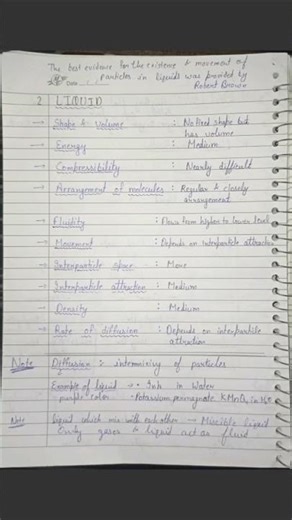 The best evidence for the existence & movement of
particles in liquids was provided by
Robert Brown
2 LIQUID
→ Shape & volume : No fixed shape but
has volume
→ Energy : Medium
→ Compressibility : Nearly difficult
→ Arrangement of molecules : Regular & closely
arrangement
→ Fluidity : Flows from higher to lower level
→ Movement : Depends on interparticle attraction
→ Interparticle space : More
→ Interparticle attraction : Medium
→ Density : Medium
→ Rate of diffusion : Depends on interparticle
attraction
Note Diffusion :- intermixing of particles
Example of liquid → • Ink in Water
purple color • Potassium permagnate KMnO4 in H2O
Note liquid which mix with each other → Miscible liquid
Only gases & liquid act as fluid